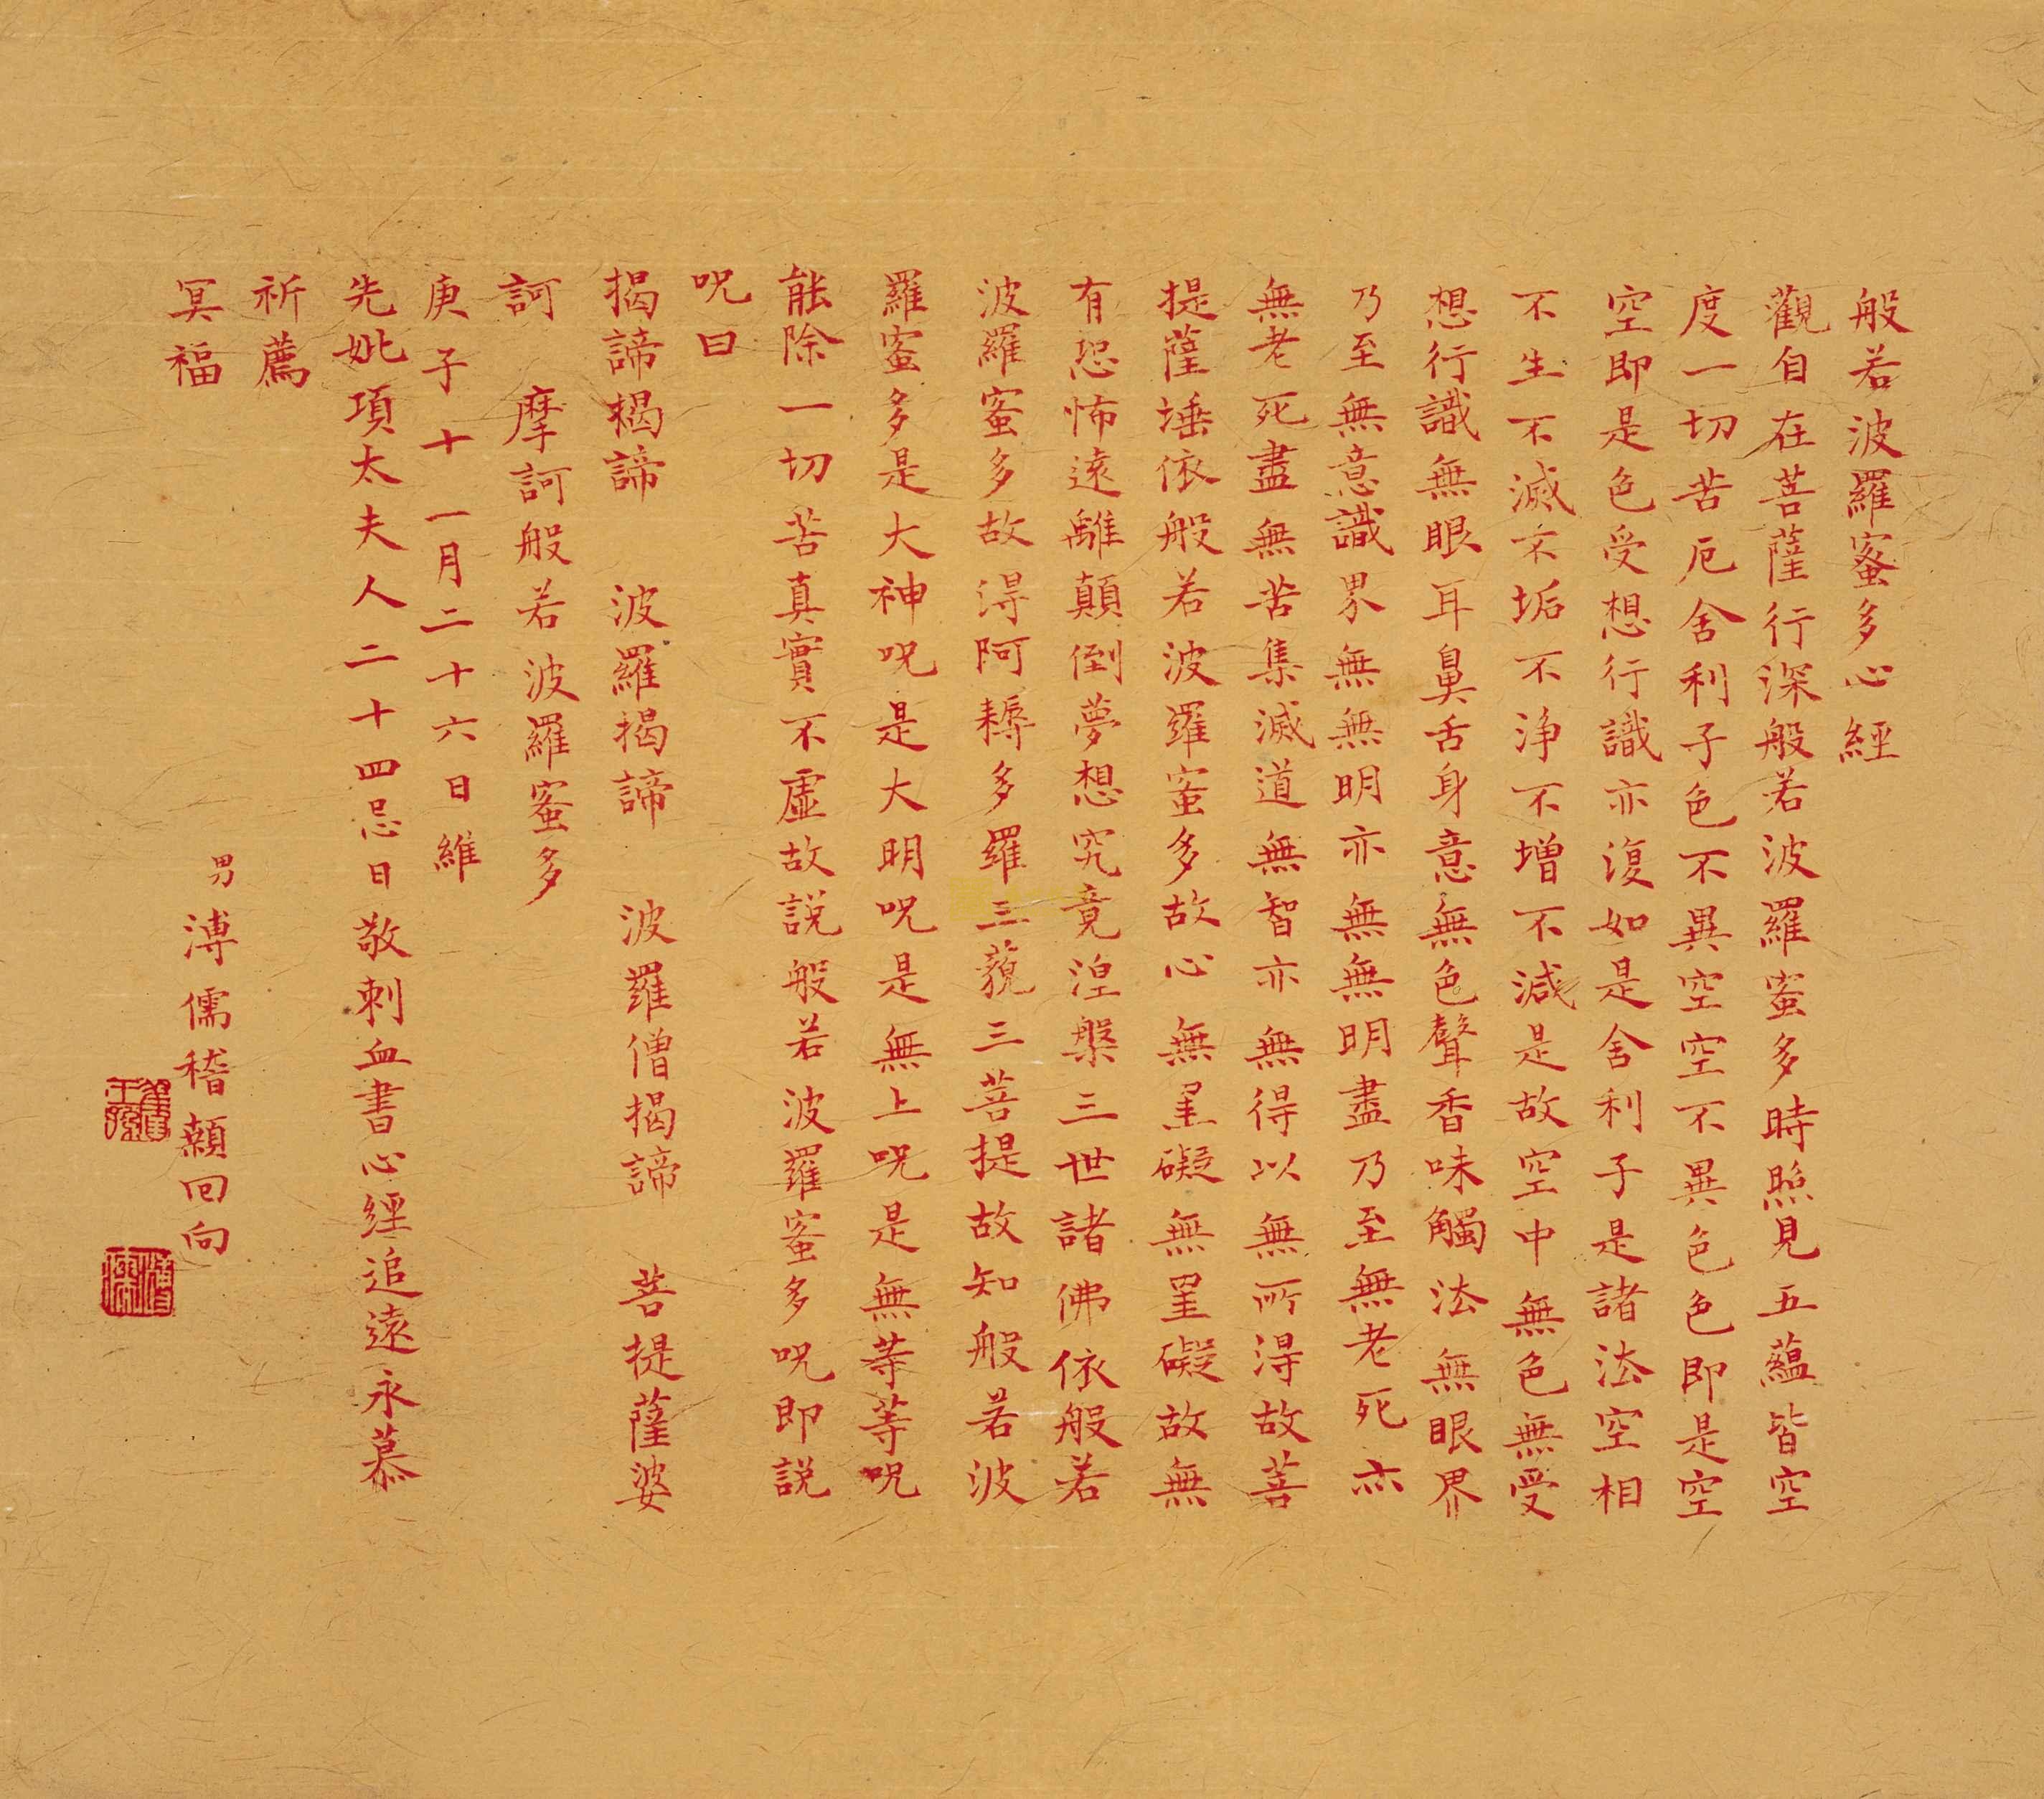 般若波羅蜜多心經
觀自在菩薩行深般若波羅蜜多時照見五蘊皆空
度一切苦厄舍利子色不異空空不異色色即是空
空即是色受想行識亦復如是舍利子是諸法空相
不生不滅不垢不淨不增不減是故空中無色無受
想行識無眼耳鼻舌身意無色聲香味觸法無眼界
乃至無意識界無無明亦無無明盡乃至無老死亦
無老死盡無苦集滅道無智亦無得以無所得故菩
提薩埵依般若波羅蜜多故心無罣礙無罣礙故無
有恐怖遠離顛倒夢想究竟湼槃三世諸佛依般若
波羅蜜多故得阿耨多羅三藐三菩提故知般若波
羅蜜多是大神呪是大明呪是無上呪是無等等呪
能除一切苦真實不虛故說般若波羅蜜多呪即說
呪曰
揭諦揭諦 波羅揭諦 波羅僧揭諦 菩提薩婆
訶 摩訶般若波羅蜜多
庚子十一月二十六日維
先妣項太夫人二十四忌日敬刺血書心經追遠永慕
祈薦
冥福
男溥儒稽顙回向